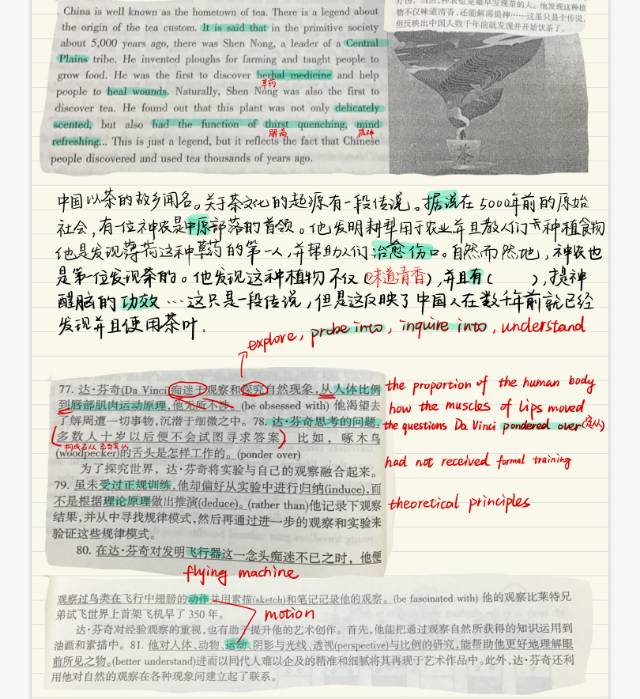 China is well known as the hometown of tea. There is a legend about
the origin of the tea custom. It is said that in the primitive society
about 5,000 years ago, there was Shen Nong, a leader of a Central
Plains tribe. He invented ploughs for farming and taught people to
grow food. He was the first to discover herbal medicine and help
草药
people to heal wounds. Naturally, Shen Nong was also the first to
discover tea. He found out that this plant was not only delicately
scented, but also had the function of thirst quenching, mind
refreshing... This is just a legend, but it reflects the fact that Chinese
people discovered and used tea thousands of years ago.
茶
中国以茶的故乡闻名。关于茶文化的起源有一段传说。据说在5000年前的原始
社会,有一位神农是中原部落的首领。他发明耕犁用于农业并且教人们种植食物
他是发现薄荷这种草药的第一人,并帮助人们治愈伤口。自然而然地,神农也
是第一位发现茶的。他发现这种植物不仅(味道清香),并且有( ),提神
醒脑的功效…这只是一段传说,但是这反映了中国人在数千年前就已经
发现并且使用茶叶.
explore, probe into, inquire into, understand
77. 达·芬奇(Da Vinci)痴迷于观察和探究自然现象,从人体比例
到唇部肌肉运动原理,他无所不涉。(be obsessed with) 他渴望去
了解周遭一切事物,沉潜于细微之中。78. 达·芬奇思考的问题,
多数人十岁以后便不会试图寻求答案) 比如,啄木鸟
(woodpecker)的舌头是怎样工作的。(ponder over)
为了探究世界,达·芬奇将实验与自己的观察融合起来。
79. 虽未受过正规训练,他却偏好从实验中进行归纳(induce),而
不是根据理论原理做出推演(deduce)。(rather than)他记录下观察
结果,并从中寻找规律模式,然后再通过进一步的观察和实验来
验证这些规律模式。
80. 在达·芬奇对发明飞行器这一念头痴迷不已之时,他便
the proportion of the human body
how the muscles of Lips moved
the questions Da Vinci pondered over
had not received formal training
theoretical principles
flying machine
观察过鸟类在飞行中翅膀的动作并用素描(sketch)和笔记记录他的观察。(be fascinated with) 他的观察比莱特兄
弟试飞世界上首架飞机早了 350 年。
motion
达·芬奇对经验观察的重视,也有助于提升他的艺术创作。首先,他能把通过观察自然所获得的知识运用到
油画和素描中。81. 他对人体、动物、运动、阴影与光线、透视(perspective)与比例的研究,能帮助他更好地理解眼
前所见之物。(better understand)进而以同代人难以企及的精准和细腻将其再现于艺术作品中。此外,达·芬奇还利
用他对自然的观察在各种现象间建立起了联系。